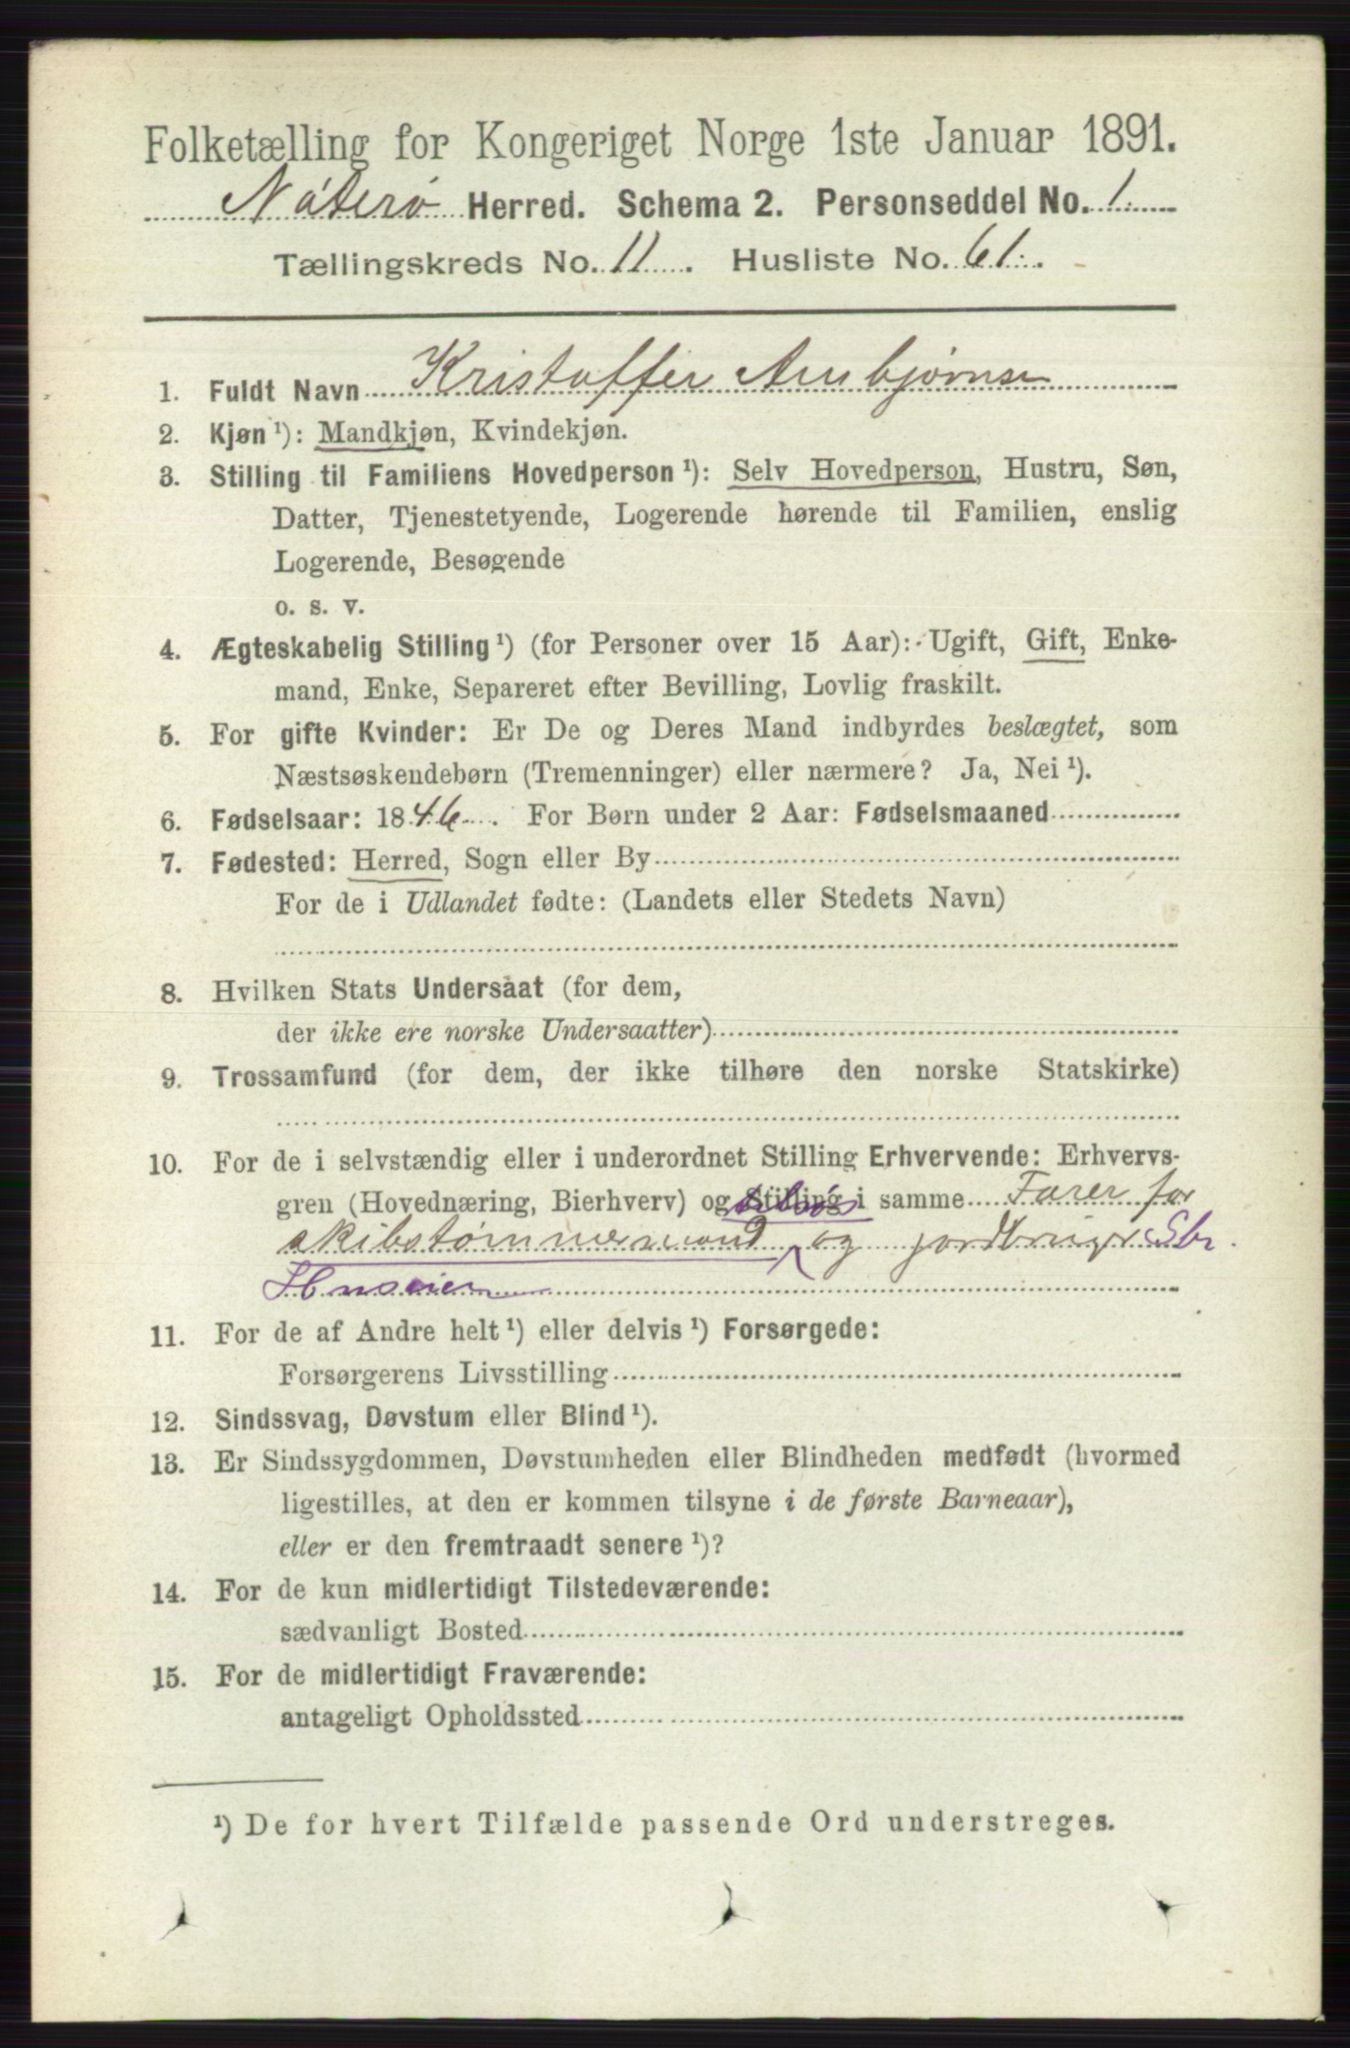 Folketælling for Kongeriget Norge 1ste Januar 1891.
Nøterø Herred. Schema 2. Personseddel No. 1.
Tællingskreds No. 11. Husliste No. 61.
1. Fuldt Navn Kristoffer Arnbjørnsen
2. Kjøn ¹): Mandkjøn, Kvindekjøn.
3. Stilling til Familiens Hovedperson ¹): Selv Hovedperson, Hustru, Søn,
Datter, Tjenestetyende, Logerende hørende til Familien, enslig
Logerende, Besøgende
o. s. v.
4. Ægteskabelig Stilling ¹) (for Personer over 15 Aar): Ugift, Gift, Enke-
mand, Enke, Separeret efter Bevilling, Lovlig fraskilt.
5. For gifte Kvinder: Er De og Deres Mand indbyrdes beslægtet, som
Næstsøskendebørn (Tremenninger) eller nærmere? Ja, Nei ¹).
6. Fødselsaar: 1846. For Børn under 2 Aar: Fødselsmaaned
7. Fødested: Herred, Sogn eller By
For de i Udlandet fødte: (Landets eller Stedets Navn)
8. Hvilken Stats Undersaat (for dem,
der ikke ere norske Undersaatter)
9. Trossamfund (for dem, der ikke tilhøre den norske Statskirke)
10. For de i selvstændig eller i underordnet Stilling Erhvervende: Erhvervs-
gren (Hovednæring, Bierhverv) og Stilling i samme Farer for
skibstømmermand og jordbruger Sbr.
Huseier
11. For de af Andre helt ¹) eller delvis ¹) Forsørgede:
Forsørgerens Livsstilling
12. Sindssvag, Døvstum eller Blind ¹).
13. Er Sindssygdommen, Døvstumheden eller Blindheden medfødt (hvormed
ligestilles, at den er kommen tilsyne i de første Barneaar),
eller er den fremtraadt senere ¹)?
14. For de kun midlertidigt Tilstedeværende:
sædvanligt Bosted
15. For de midlertidigt Fraværende:
antageligt Opholdssted
¹) De for hvert Tilfælde passende Ord understreges.